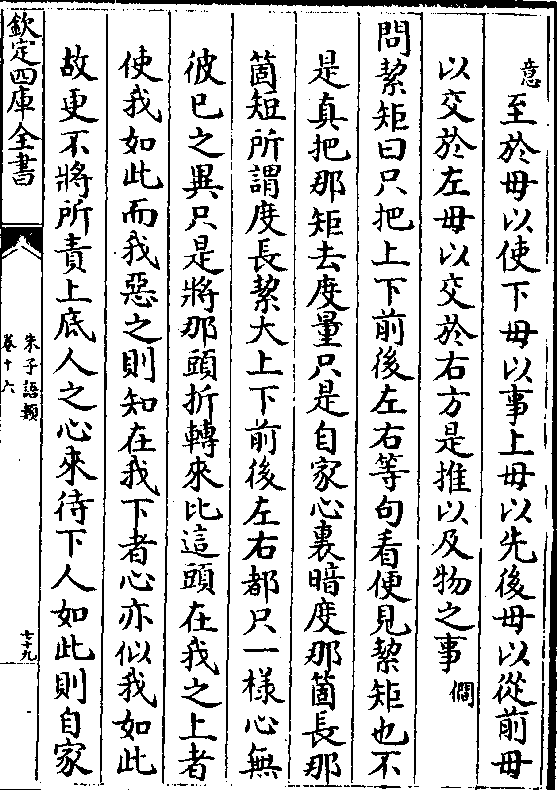 意至於毋以使下毋以事上毋以先後毋以從前毋
以交於左毋以交於右方是推以及物之事僩
問絜矩曰只把上下前後左右等句看便見絜矩也不
是真把那矩去度量只是自家心裏暗度那箇長那
箇短所謂度長絜大上下前後左右都只一樣心無
彼已之異只是將那頭折轉來比這頭在我之上者
使我如此而我惡之則知在我下者心亦似我如此
故更不將所責上底人之心來待下人如此則自家
欽定四庫全書
朱子語類
卷十六
七十九